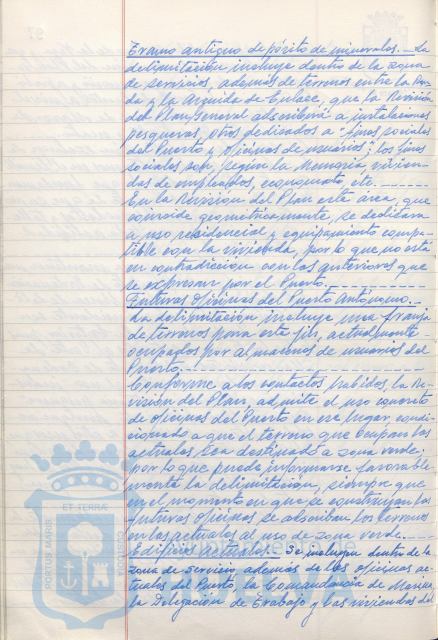 Tramo antiguo depósito de minerales.- La
delimitación incluye dentro de la zona
de servicios, además de terrenos entre la Ron-
da y la Avenida de Enlace, que la Revisión
del Plan General adscribirá a instalaciones
pesqueras, otros dedicados a "fines sociales
del Puerto y oficinas de usuarios"; los fines
sociales son, según la Memoria, vivien-
das de empleados, economato, etc.
En la Revisión del Plan este área, que
coincide geométricamente, se dedicará
a uso residencial y equipamiento compa-
tible con la vivienda, por lo que no está
en contradicción con los anteriores que
se expresan por el Puerto.
Futuras oficinas del Puerto Autónomo.
La delimitación incluye una franja
de terrenos para este fin, actualmente
ocupados por almacenes de usuarios del
Puerto.
Conforme a los contactos habidos, la Re-
visión del Plan, admite el uso concreto
de oficinas del Puerto en ese lugar condi-
cionado a que el terreno que ocupan las
actuales sea destinado a zona verde,
por lo que puede informarse favorable-
mente la delimitación, siempre que
en el momento en que se construyan las
futuras oficinas se adscriban los terrenos
en las actuales al uso de zona verde.
Edificios actuales.- Se incluyen dentro de la
zona de servicio además de las oficinas ac-
tuales del Puerto, la Comandancia de Marina
la Delegación de Trabajo y las viviendas del
ET TERRA
PORTUS MARIS
CUSTODIA